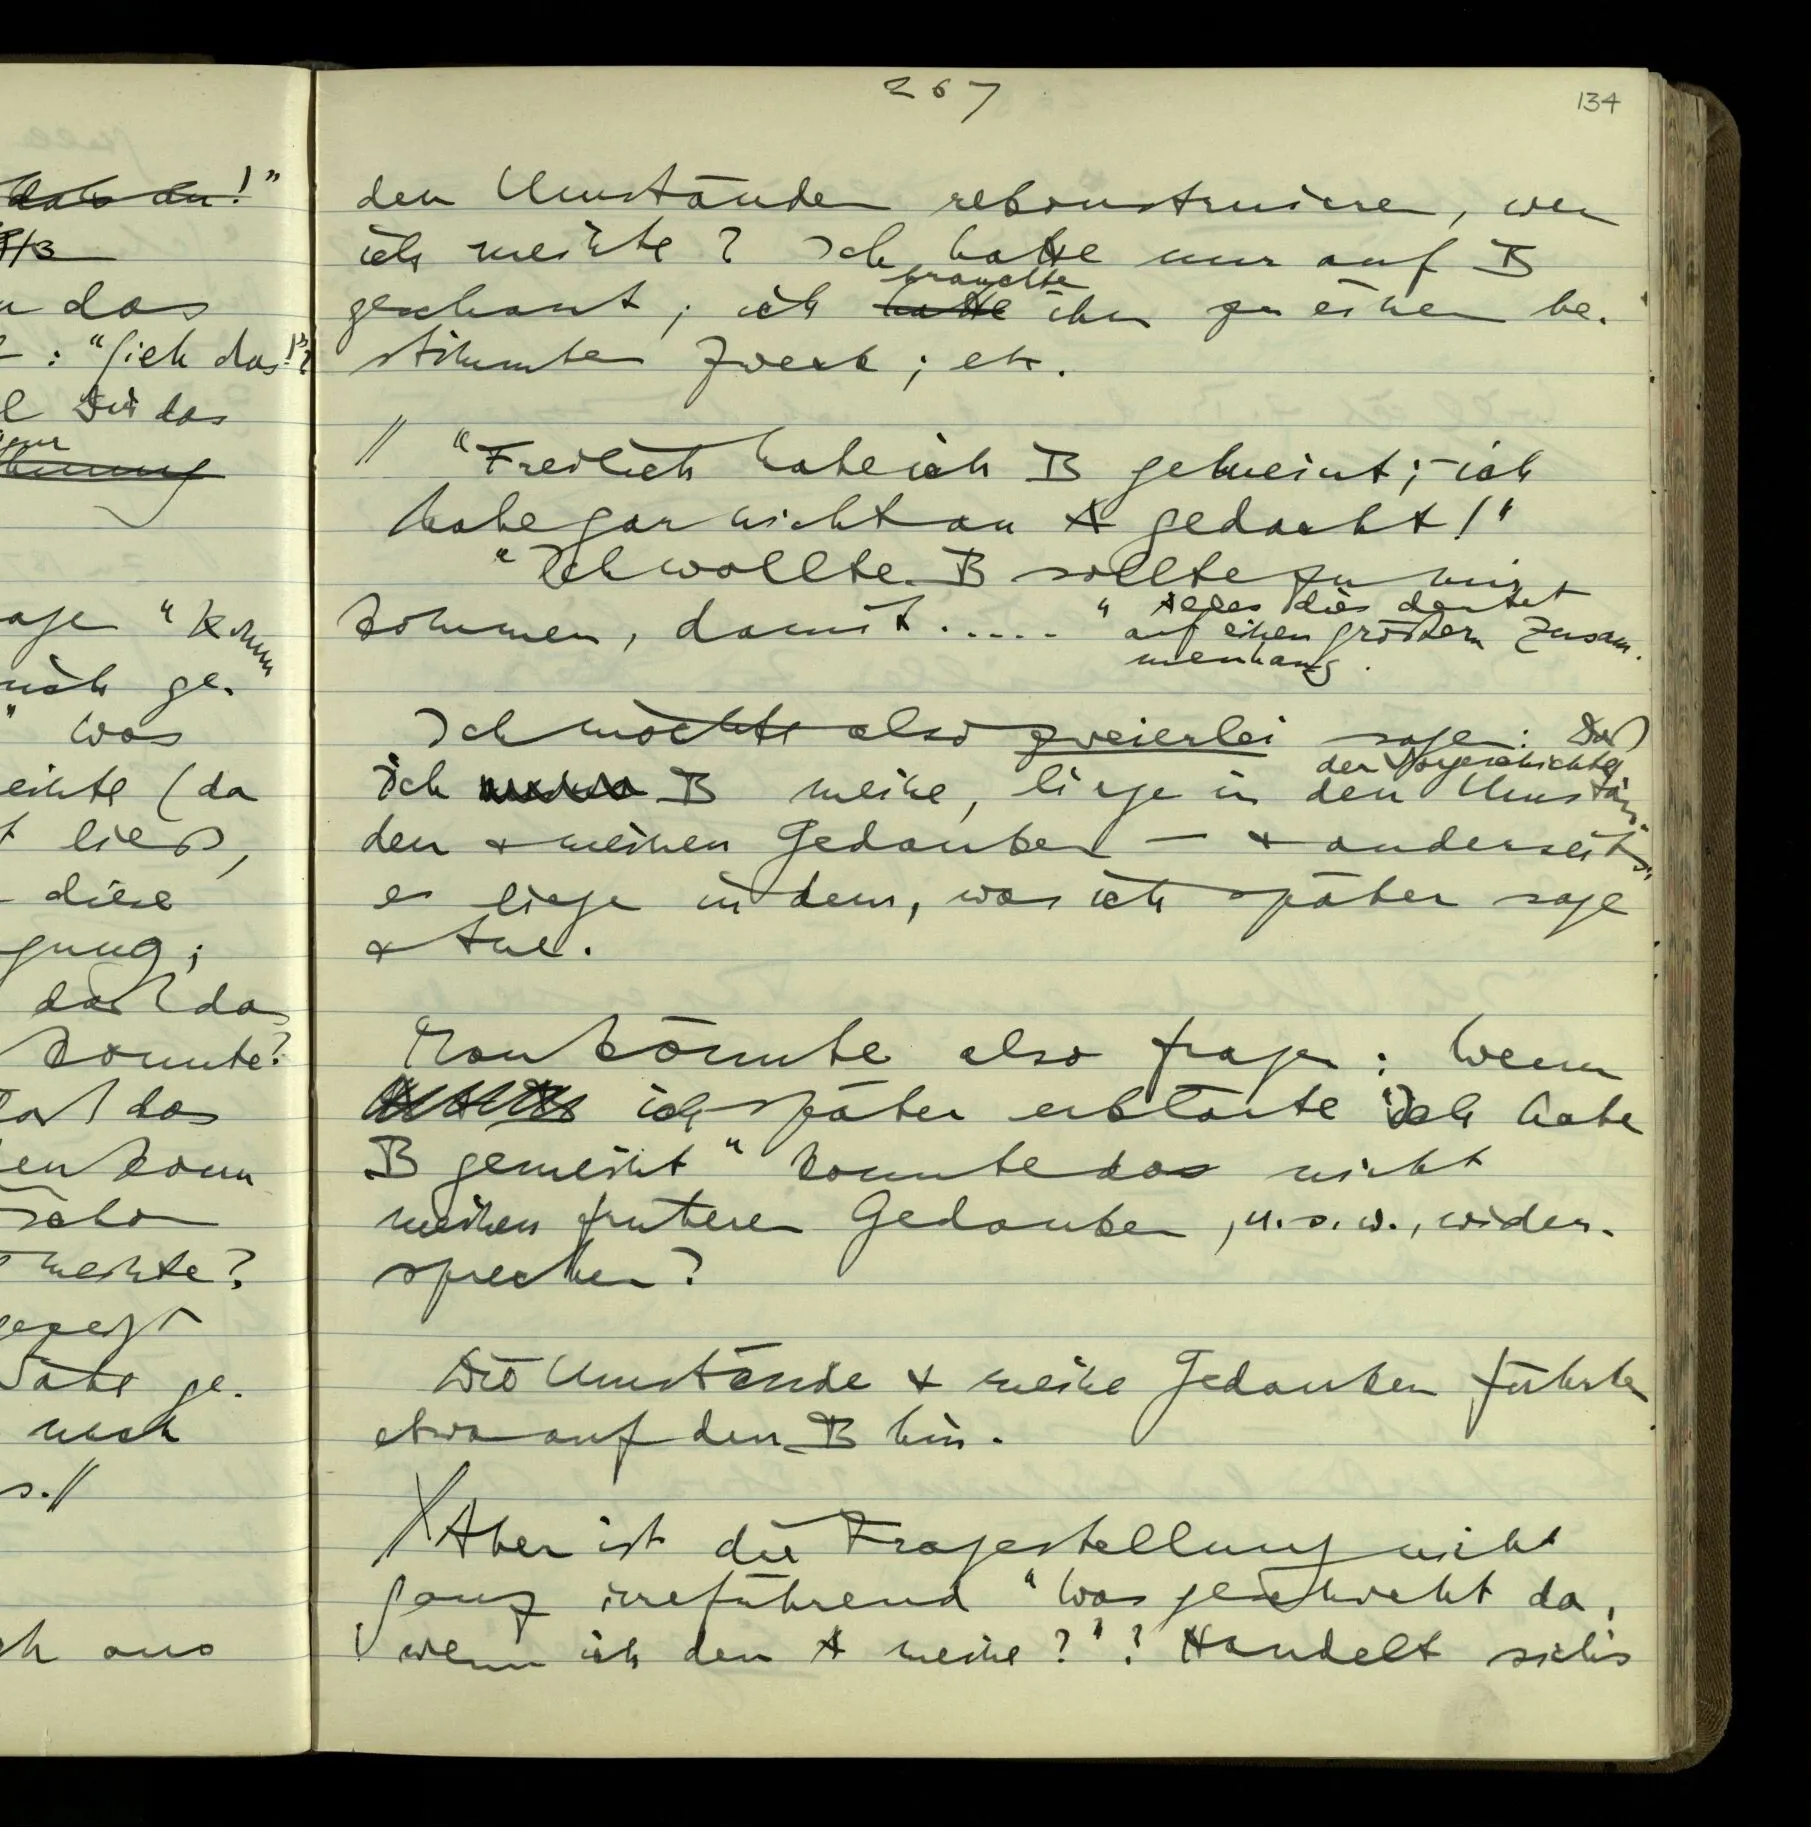 267
134
den Umständen rekonstruieren, wen
ich meinte? Ich hatte nur auf B
geschaut; ich hatte brauchte ihn zu einem be-
stimmten Zweck; etc.
// "Freilich habe ich B gemeint; – ich
habe gar nicht an A gedacht!"
"Ich wollte B sollte zu mir
kommen, damit ....." Alles dies deutet
auf einen größern Zusam-
menhang.
Ich möchte also zweierlei sagen: Daß
ich B meine, liege in den Umstän-
der Vorgeschichte
den & meinen Gedanken — & anderseits,
es liege in dem, was ich später sage
& tue.
Man könnte also fragen: Wenn
ich später erklärte "Ich habe
B gemeint" konnte das nicht
meinen früheren Gedanken, u.s.w., wider-
sprechen?
Die Umstände & meine Gedanken führten
etwa auf den B hin.
Aber ist die Fragestellung nicht
ganz irreführend "Was geschieht da,
wenn ich den A meine?"? Handelt sich's
das du!"
n das
: "Sieh das!"?
Dir das
"Komm
mich ge-
" was
meinte (da
ließ,
diese
daß da
konnte?
daß das
kann
schon
meinte?
gezeigt
Nähe ge-
nach
s.//
ch aus